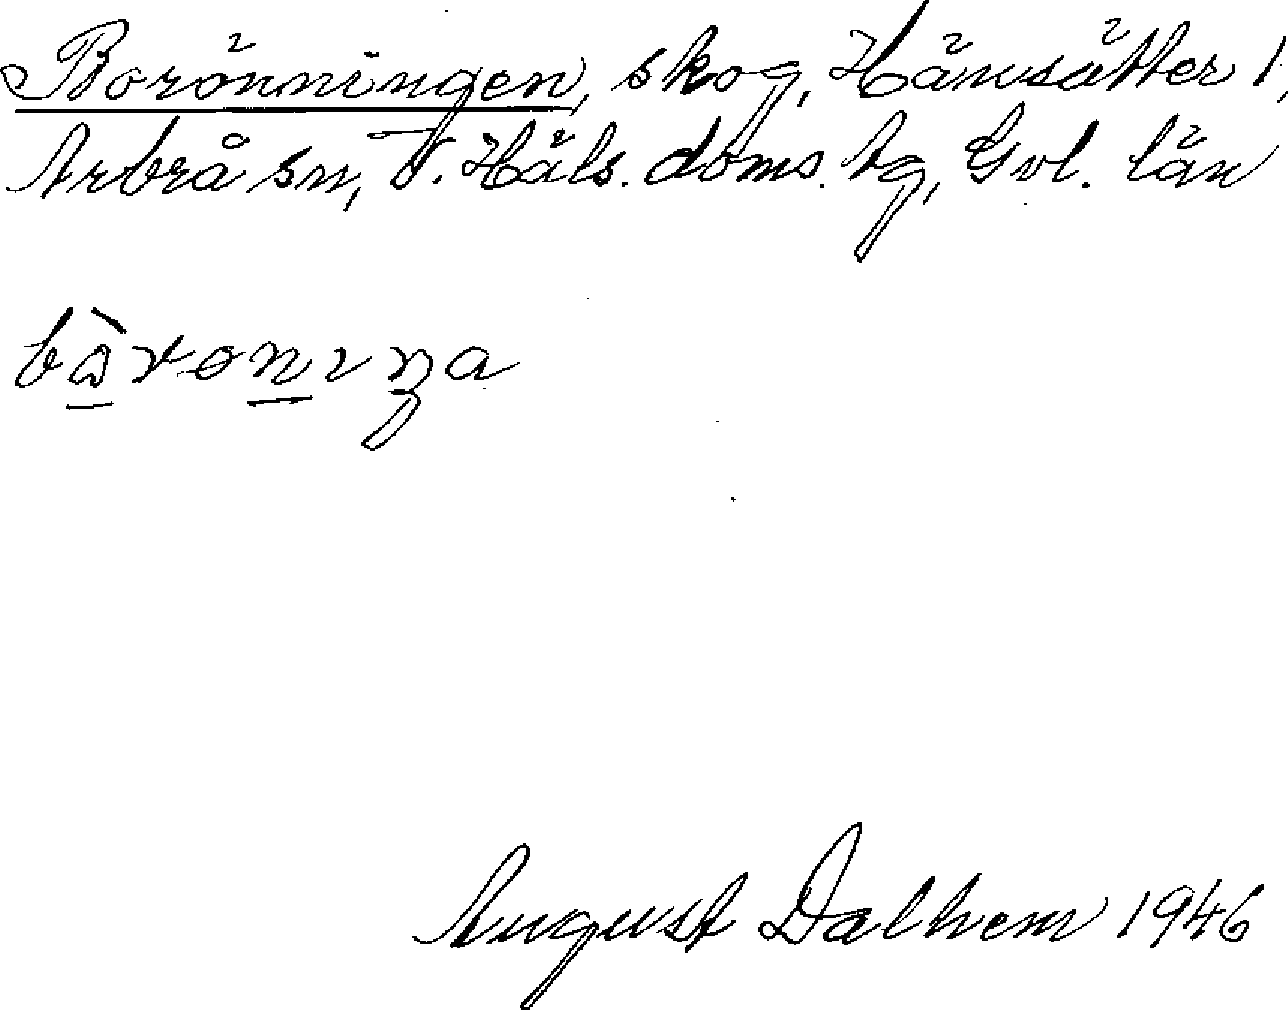 Borönningen, skog, Hämsätter 1,
Arbrå sn, V. Häls. doms. tg, Gvl. län
August Dalhem 1946